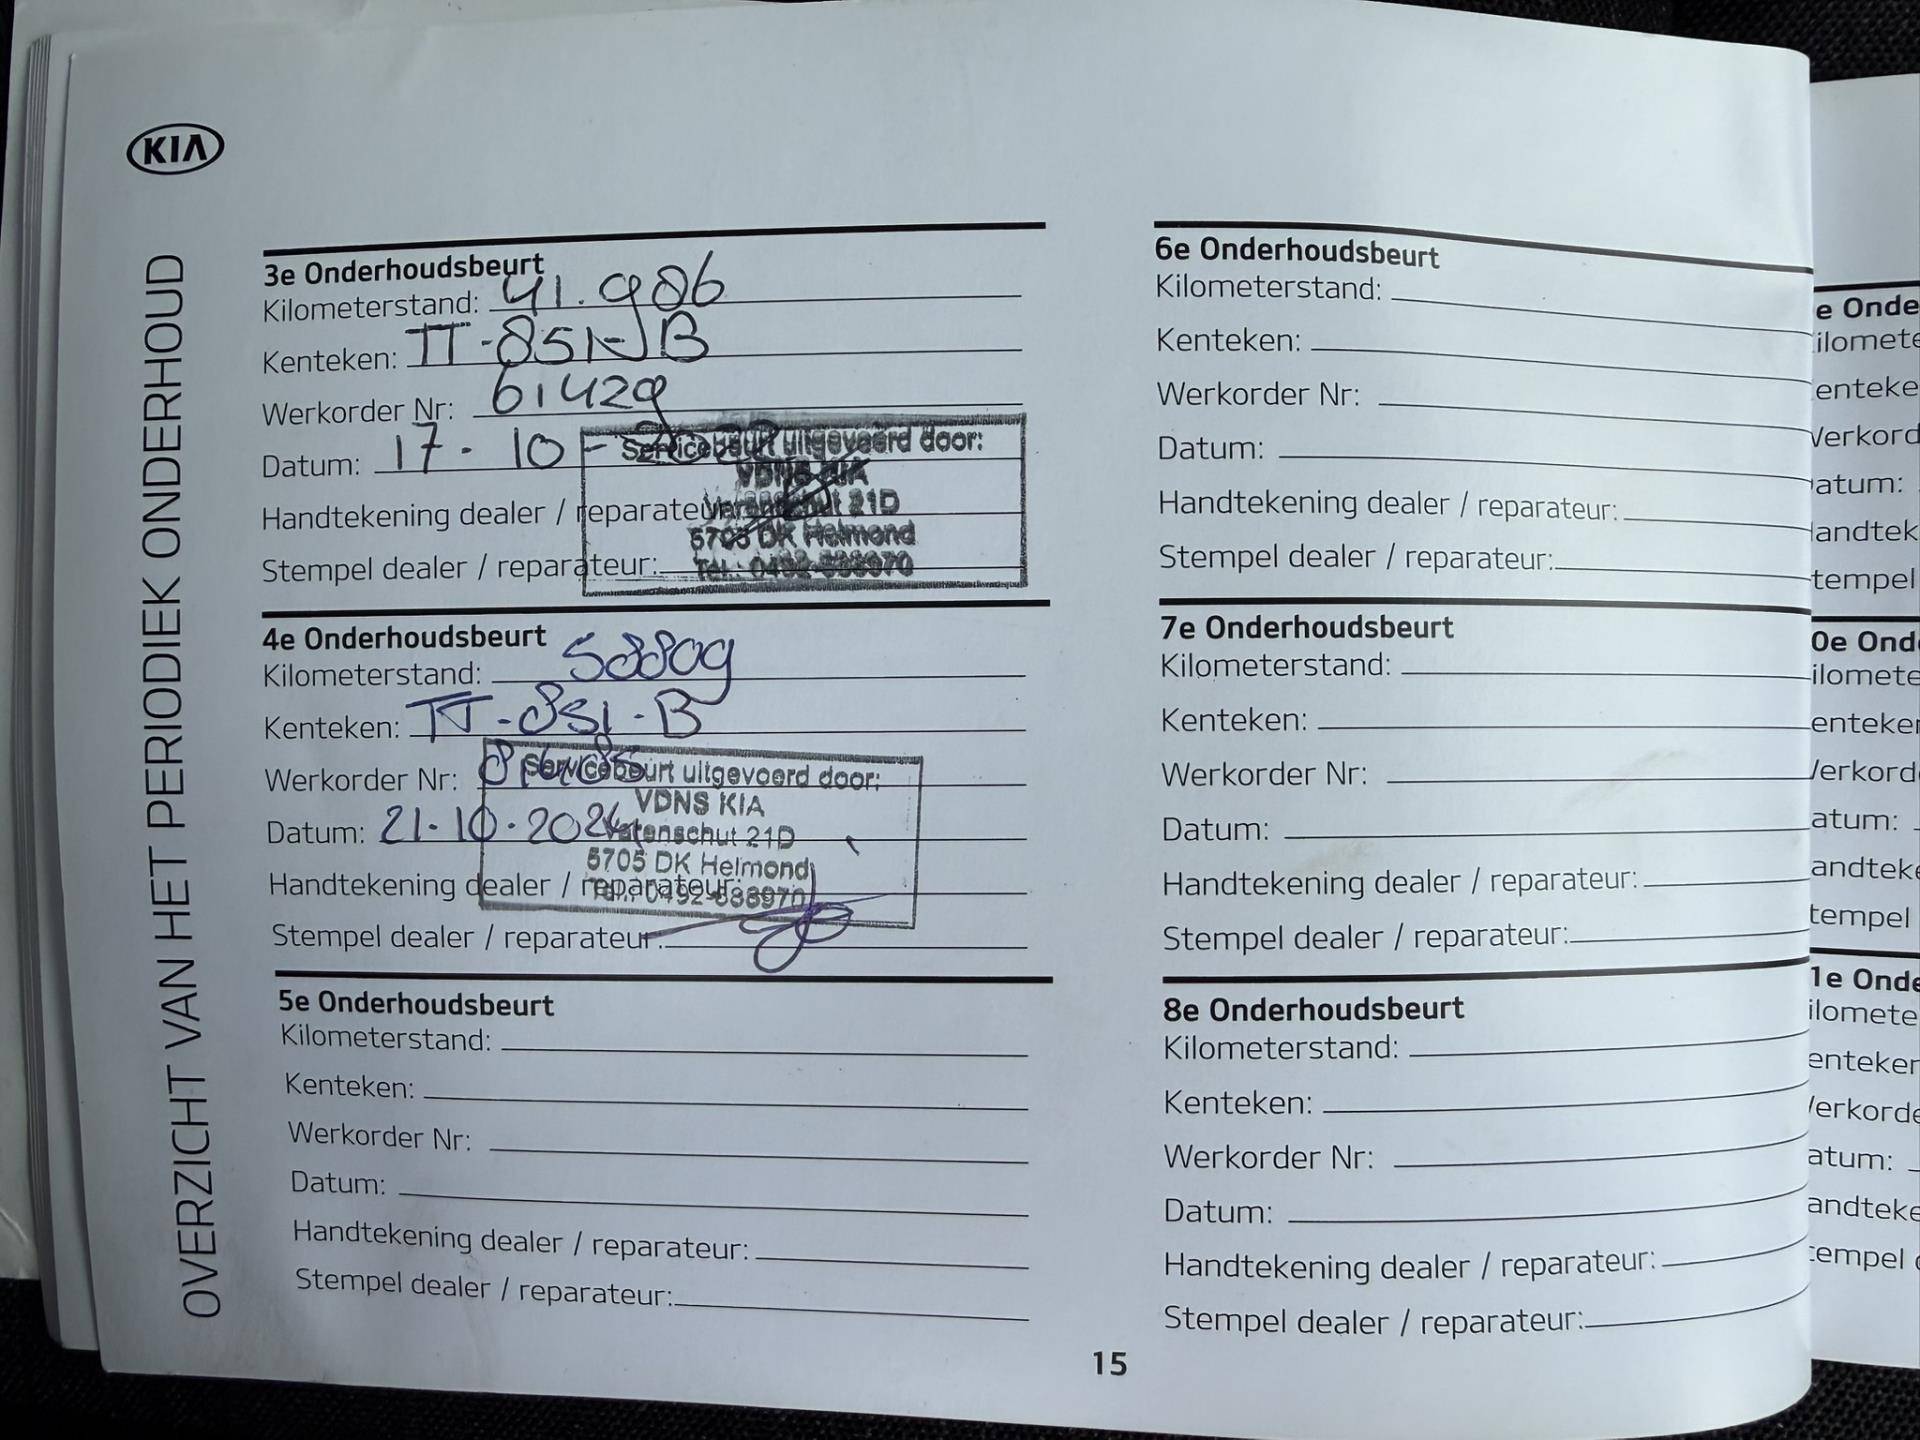 KIA
OVERZICHT VAN HET PERIODIEK ONDERHOUD
3e Onderhoudsbeurt
Kilometerstand: 41.986
Kenteken: TT-851-B
Werkorder Nr: 61429
Datum: 17-10-
Servicebeurt uitgevoerd door:
VDNS KIA
Varenschut 21D
5705 DK Helmond
Tel.: 0492-588970
Handtekening dealer / reparateur:
Stempel dealer / reparateur:
4e Onderhoudsbeurt
Kilometerstand: 58809
Kenteken: TT-851-B
Werkorder Nr:
Datum: 21-10-2024
Servicebeurt uitgevoerd door:
VDNS KIA
Varenschut 21D
5705 DK Helmond
Tel.: 0492-588970
Handtekening dealer / reparateur:
Stempel dealer / reparateur:
5e Onderhoudsbeurt
Kilometerstand:
Kenteken:
Werkorder Nr:
Datum:
Handtekening dealer / reparateur:
Stempel dealer / reparateur:
6e Onderhoudsbeurt
Kilometerstand:
Kenteken:
Werkorder Nr:
Datum:
Handtekening dealer / reparateur:
Stempel dealer / reparateur:
7e Onderhoudsbeurt
Kilometerstand:
Kenteken:
Werkorder Nr:
Datum:
Handtekening dealer / reparateur:
Stempel dealer / reparateur:
8e Onderhoudsbeurt
Kilometerstand:
Kenteken:
Werkorder Nr:
Datum:
Handtekening dealer / reparateur:
Stempel dealer / reparateur:
15
e Onde
ilomete
enteke
Verkord
atum:
andtek
tempel
0e Ond
ilomete
enteker
erkord
atum:
andteke
tempel
1e Onde
ilomete
enteker
erkorde
atum:
andteke
empel